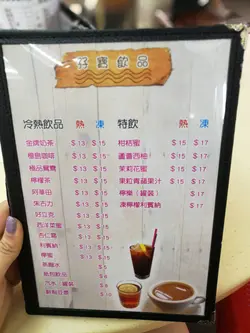 好寶飲品
冷熱飲品 熱 凍
金牌奶茶 $13 $15
極品鴛鴦 $13 $15
檸檬茶 $13 $15
阿華田 $13 $15
朱古力 $13 $15
好立克 $13 $15
西洋菜蜜 $13 $15
杏仁霜 $13 $15
利賓納 $13 $15
檸蜜 $13 $15
特飲 熱 凍
柑桔蜜 $15 $17
蘆薈西柚 $15 $17
茉莉花蜜 $15 $17
東紅青蘋果汁 $17
檸樂(罐裝) $17
凍檸檬利賓納 $17